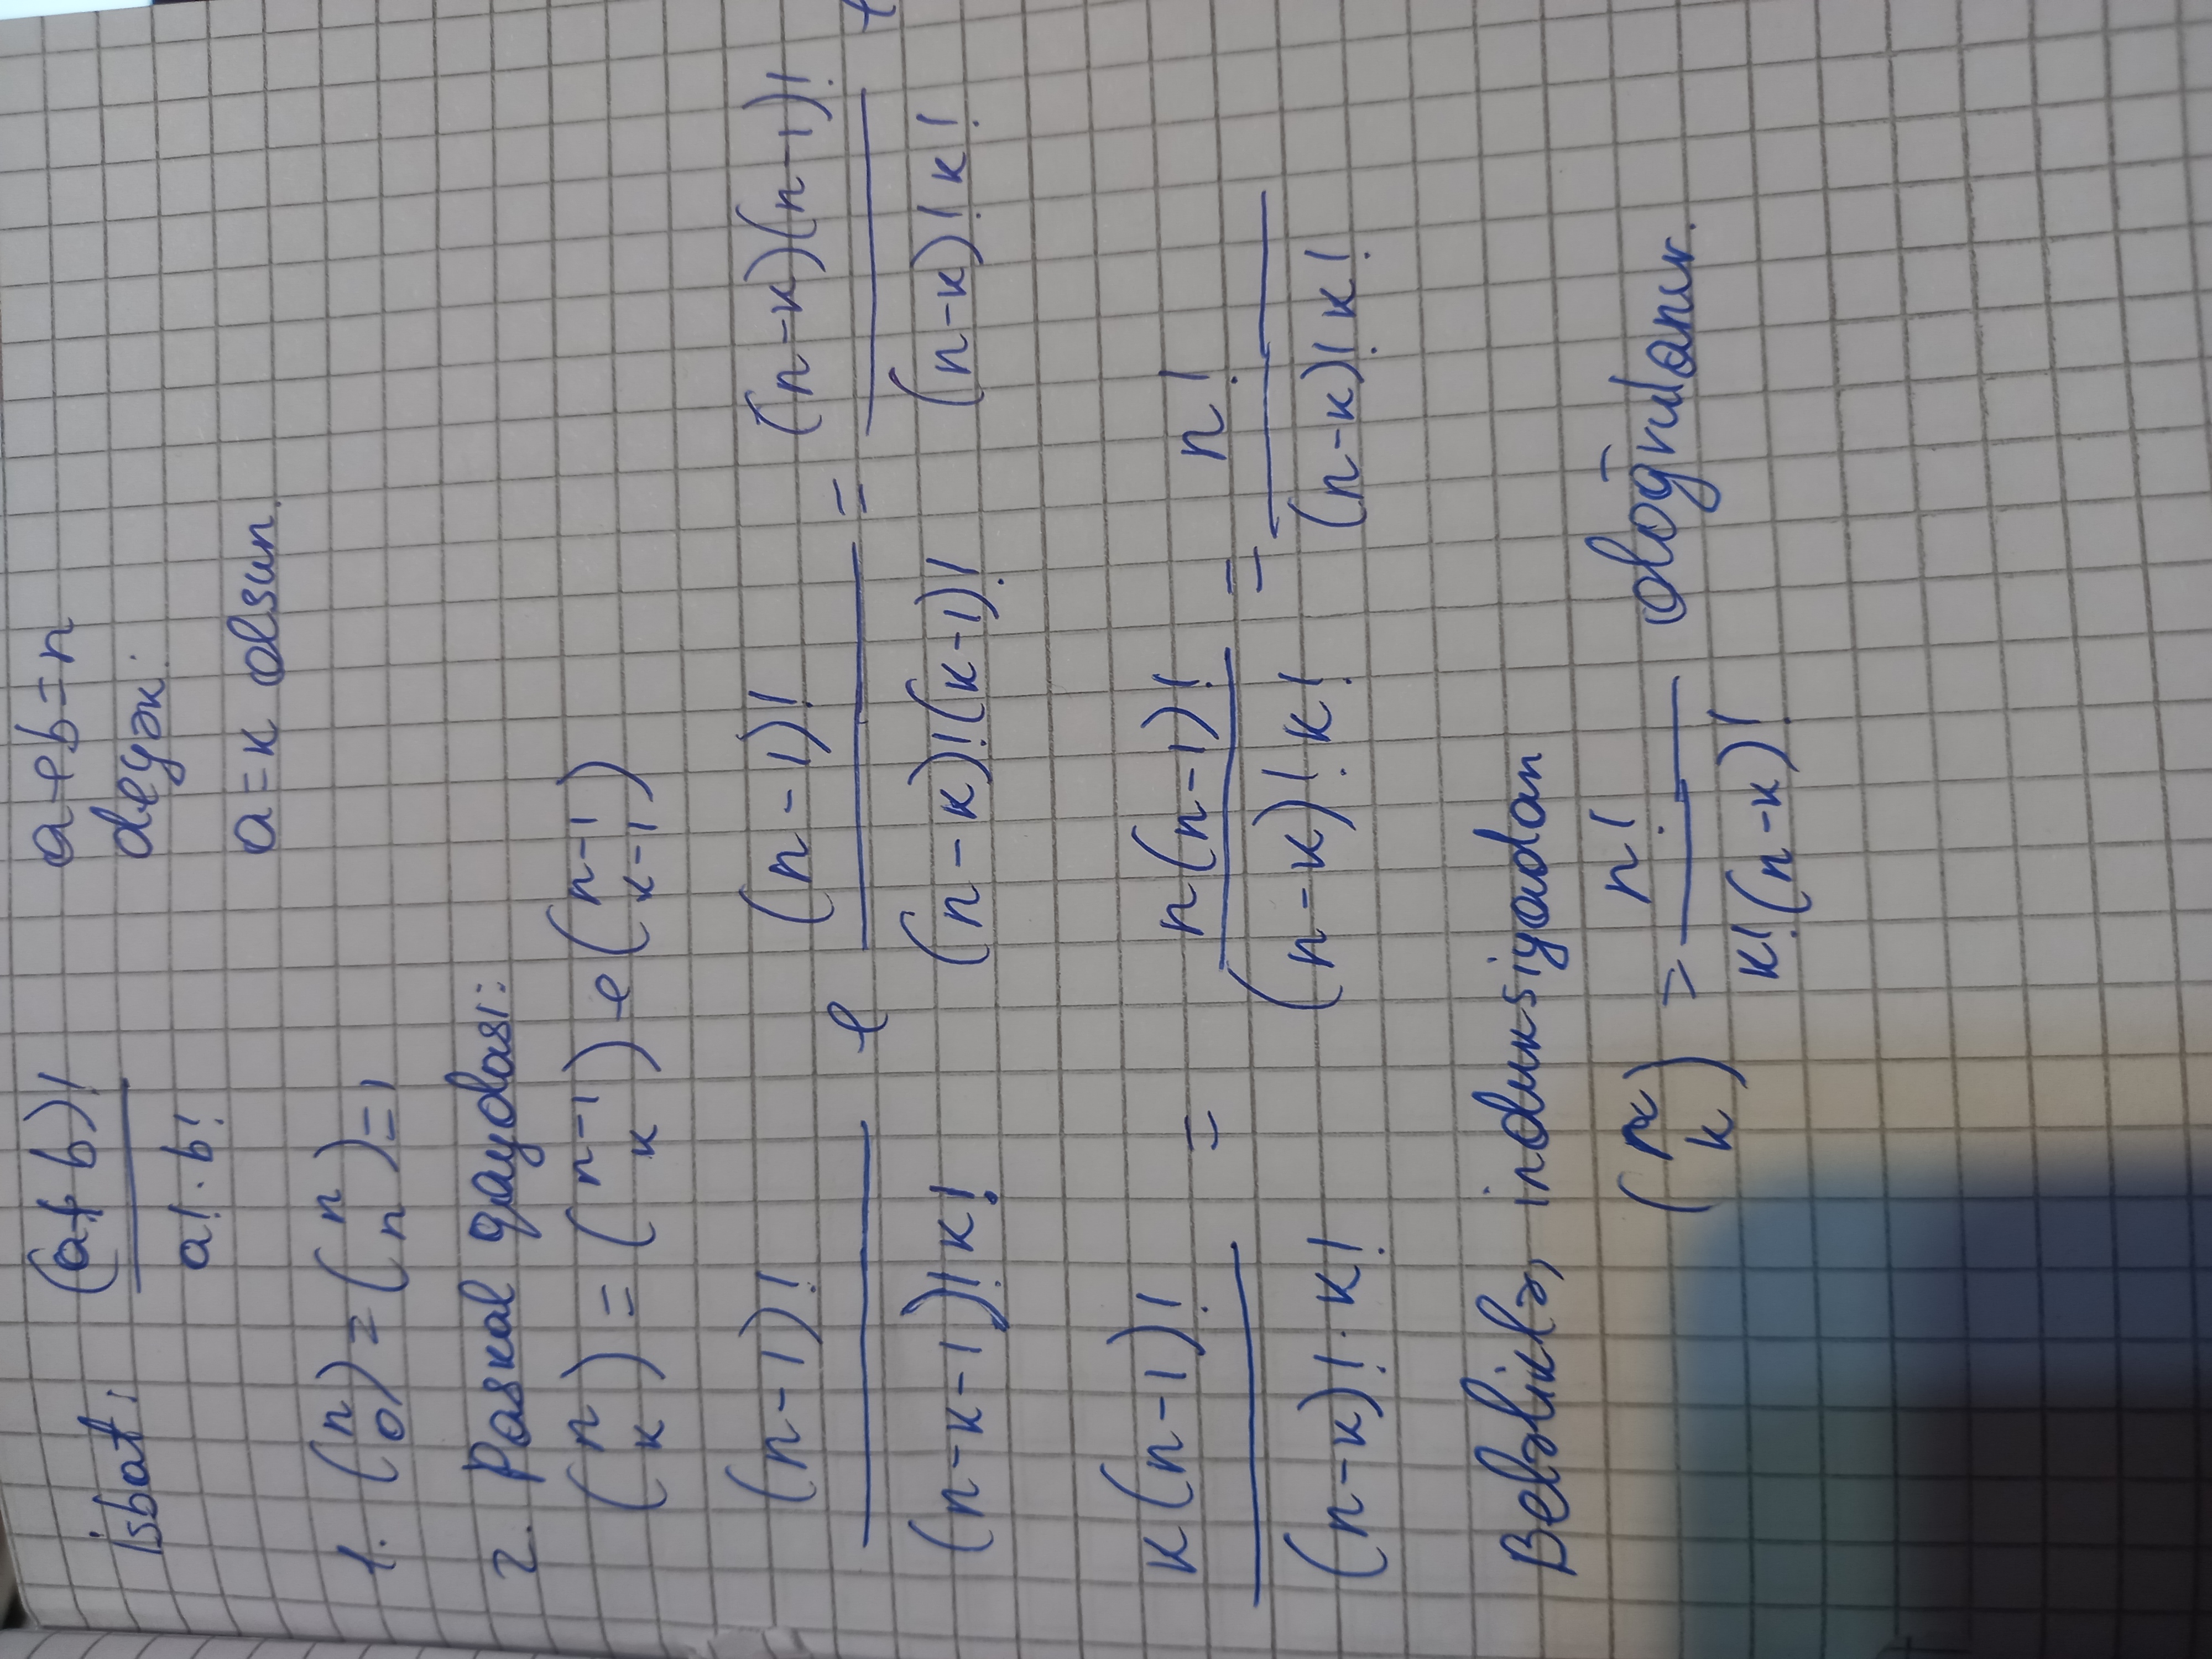 İsbat: (a+b)! / a! · b!    a+b=n
deyək:
a=k olsun.
1. (n 0) = (n n) = 1
2. Paskal qaydası:
(n k) = (n-1 k) + (n-1 k-1)
(n-1)! / (n-k-1)! k! + (n-1)! / (n-k)! (k-1)! = (n-k)(n-1)! / (n-k)! k! +
k(n-1)! / (n-k)! · k! = n(n-1)! / (n-k)! k! = n! / (n-k)! k!
Beləliklə, induksiyadan
(n k) = n! / k! (n-k)! doğrulanır.